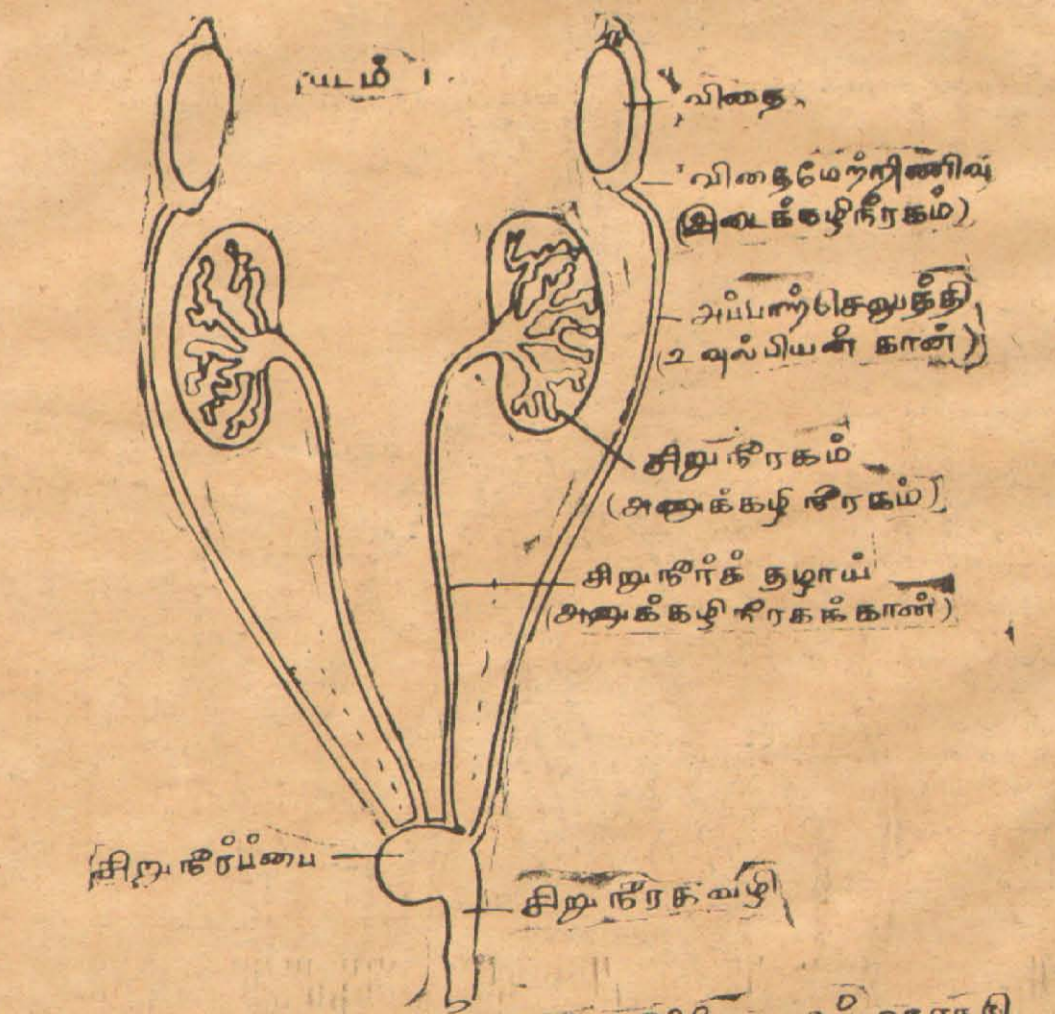 படம் 1.
விதை
விதைமேற்றிணிவு
(இடைக்கழிநீரகம்)
அப்பாற்செலுத்தி
(உவுல்பியன் கான்)
சிறுநீரகம்
(அனுக்கழிநீரகம்)
சிறுநீர்க் தழாய்
(அனுக்கழிநீரகக்கான்)
சிறுநீர்ப்பை
சிறுநீரகவழி